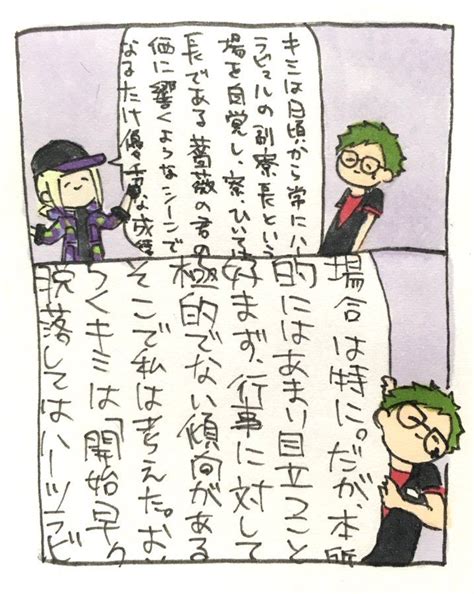 キミは日頃から常にハー
ラビュルの副寮長という
場を自覚し、寮、ひいては
長である薔薇の君の
価に響くようなシーンで
なるたけ優秀な成績
場合は特に。だが、本
的にはあまり目立つこと
好まず、行事に対して
極的でない傾向がある
そこで私は考えた。お
らくキミは「開始早々
脱落してはハーツラビ